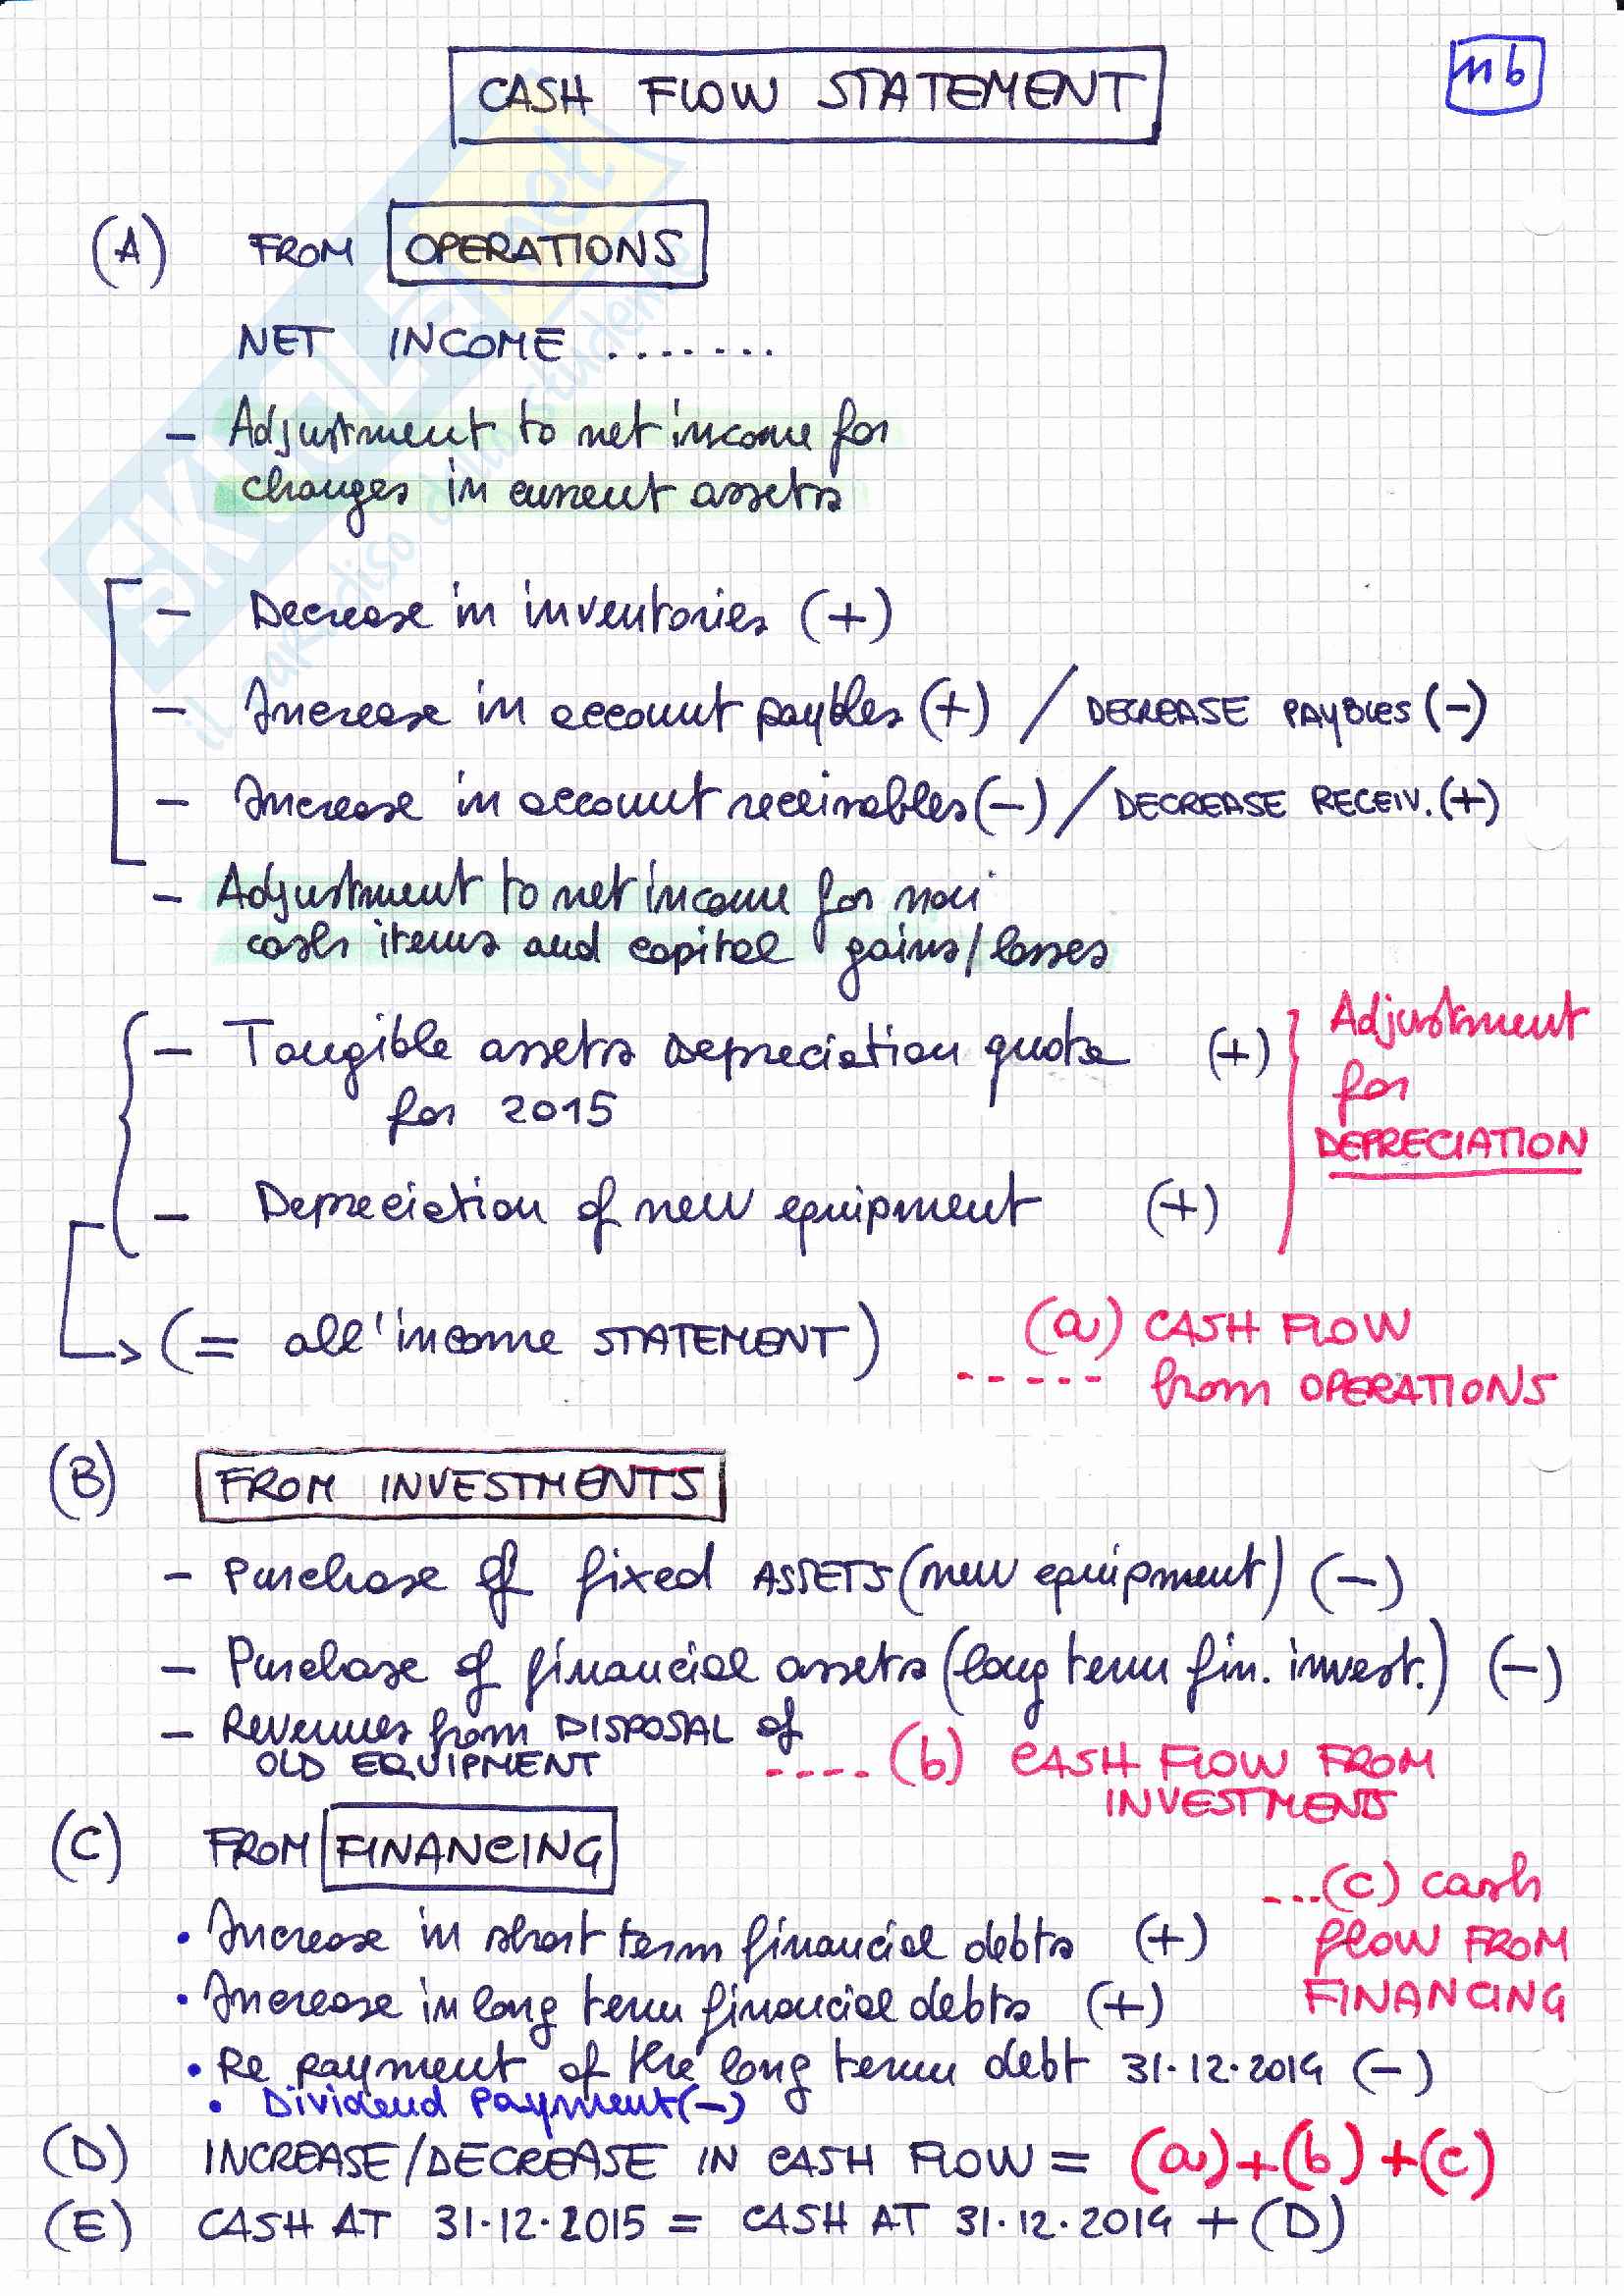 CASH FLOW STATEMENT
(A) FROM OPERATIONS
NET INCOME .......
- Adjustment to net income for
changes in current assets
- Decrease in inventories (+)
- Increase in account paybles (+) / DECREASE PAYBLES (-)
- Increase in account receivables (-) / DECREASE RECEIV. (+)
- Adjustment to net income for non
cash items and capital gains/losses
- Tangible assets Depreciation quote (+)
for 2015
Adjustment
for
DEPRECIATION
- Depreciation of new equipment (+)
(= all'income STATEMENT)
(a) CASH FLOW
----- from OPERATIONS
(B) FROM INVESTMENTS
- Purchase of fixed ASSETS (new equipment) (-)
- Purchase of financial assets (long term fin. invest.) (-)
- Revenues from DISPOSAL of
OLD EQUIPMENT
---- (b) CASH FLOW FROM
INVESTMENTS
(C) FROM FINANCING
• Increase in short term financial debts (+)
• Increase in long term financial debts (+)
---(c) cash
flow FROM
FINANCING
• Re payment of the long term debt 31.12.2014 (-)
• Dividend Payment (-)
(D) INCREASE/DECREASE IN CASH FLOW = (a)+(b)+(c)
(E) CASH AT 31.12.2015 = CASH AT 31.12.2014 + (D)
SKUOLA.net